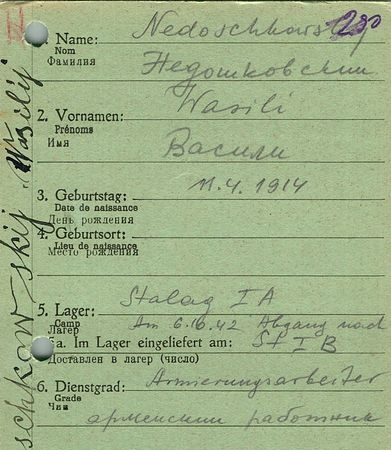 1. Name: Nedoschkowskij 230
Nom
Фамилия Недошковский
Wasili
2. Vornamen:
Prénoms
Имя Васили
3. Geburtstag: 11.4.1914
Date de naissance
День рождения
4. Geburtsort:
Lieu de naissance
Место рождения
5. Lager: Stalag I A
Camp Am 6.10.42 Abgang nach
Лагер
5a. Im Lager eingeliefert am: St I B
Доставлен в лагер (число)
6. Dienstgrad: Armierungsarbeiter
Grade
Чин арменский работник
schkowskij Wasilij